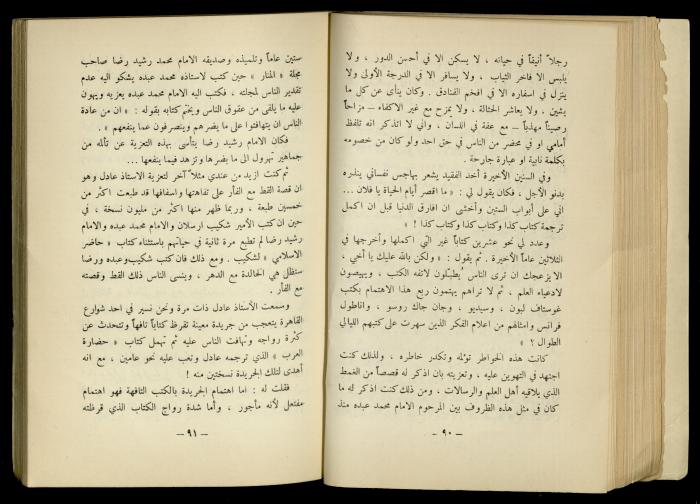 رجلاً أنيقاً في حياته ، لا يسكن الا في أحسن الدور ، ولا
يلبس الا فاخر الثياب ، ولا يسافر الا في الدرجة الأولى ولا
ينزل في اسفاره الا في افخم الفنادق . وكان ينأى عن كل ما
يشين ، ولا يعاشر الحثالة ، ولا يمزح مع غير الاكفاء — مزاحاً
رصيناً مهذباً — مع عفة في اللسان ، واني لا اتذكر انه تلفظ
أمامي او في محضر من الناس في حق احد ولو كان من خصومه
بكلمة نابية او عبارة جارحة .
وفي السنين الأخيرة أخذ الفقيد يشعر بهاجس نفساني ينذره
بدنو الأجل ، فكان يقول لي : « ما اقصر أيام الحياة يا فلان ...
اني على أبواب الستين وأخشى ان افارق الدنيا قبل ان اكمل
ترجمة كتاب كذا وكتاب كذا وكتاب كذا ! »
وعدد لي نحو عشرين كتاباً غير التي اكملها وأخرجها في
الثلاثين عاماً الأخيرة . ثم يقول : « ولكن بالله عليك يا أخي ،
الا يزعجك ان ترى الناس يُطبّلون لاتفه الكتب ، ويهيصون
لادعياء العلم ، ثم لا تراهم يهتمون ربع هذا الاهتمام بكتب
غوستاف لبون ، وسيديو ، وجان جاك روسو ، واناطول
فرانس وامثالهم من اعلام الفكر الذين سهرت على كتبهم الليالي
الطوال ؟ »
كانت هذه الخواطر تؤلمه وتكدر خاطره ، ولذلك كنت
اجتهد في التهوين عليه ، وتعزيته بان اذكر له قصصاً من الغمط
الذي يلاقيه أهل العلم والرسالات ، ومن ذلك كنت اذكر له ما
كان في مثل هذه الظروف بين المرحوم الامام محمد عبده منذ
— ٩٠ —
ستين عاماً وتلميذه وصديقه الامام محمد رشيد رضا صاحب
مجلة « المنار » حين كتب لاستاذه محمد عبده يشكو اليه عدم
تقدير الناس لمجلته ، فكتب اليه الامام محمد عبده يعزيه ويهون
عليه ما يلقى من عقوق الناس ويختم كتابه بقوله : « ان من عادة
الناس ان يتهافتوا على ما يضرهم وينصرفون عما ينفعهم » .
فكان الامام رشيد رضا يتأسى بهذه التعزية عن تألمه من
جماهير تهرول الى ما يضرها وتزهد فيما ينفعها ...
ثم كنت ازيد من عندي مثلاً آخر لتعزية الاستاذ عادل وهو
ان قصة القط مع الفأر على تفاهتها واسفافها قد طبعت اكثر من
خمسين طبعة ، وربما ظهر منها اكثر من مليون نسخة ، في
حين ان كتب الأمير شكيب ارسلان والامام محمد عبده والامام
رشيد رضا لم تطبع مرة ثانية في حياتهم باستثناء كتاب « حاضر
الاسلامي » لشكيب . ومع ذلك فان كتب شكيب وعبده ورضا
ستظل هي الخالدة مع الدهر ، وينسى الناس ذلك القط وقصته
مع الفأر .
وسمعت الأستاذ عادل ذات مرة ونحن نسير في احد شوارع
القاهرة يتعجب من جريدة معينة تقرظ كتاباً تافهاً وتتحدث عن
كثرة رواجه وتهافت الناس عليه ثم تهمل كتاب « حضارة
العرب » الذي ترجمه عادل وتعب عليه نحو عامين ، مع انه
أهدى لتلك الجريدة نسختين منه !
فقلت له : اما اهتمام الجريدة بالكتب التافهة فهو اهتمام
مفتعل لأنه مأجور ، وأما شدة رواج الكتاب الذي قرظته
— ٩١ —